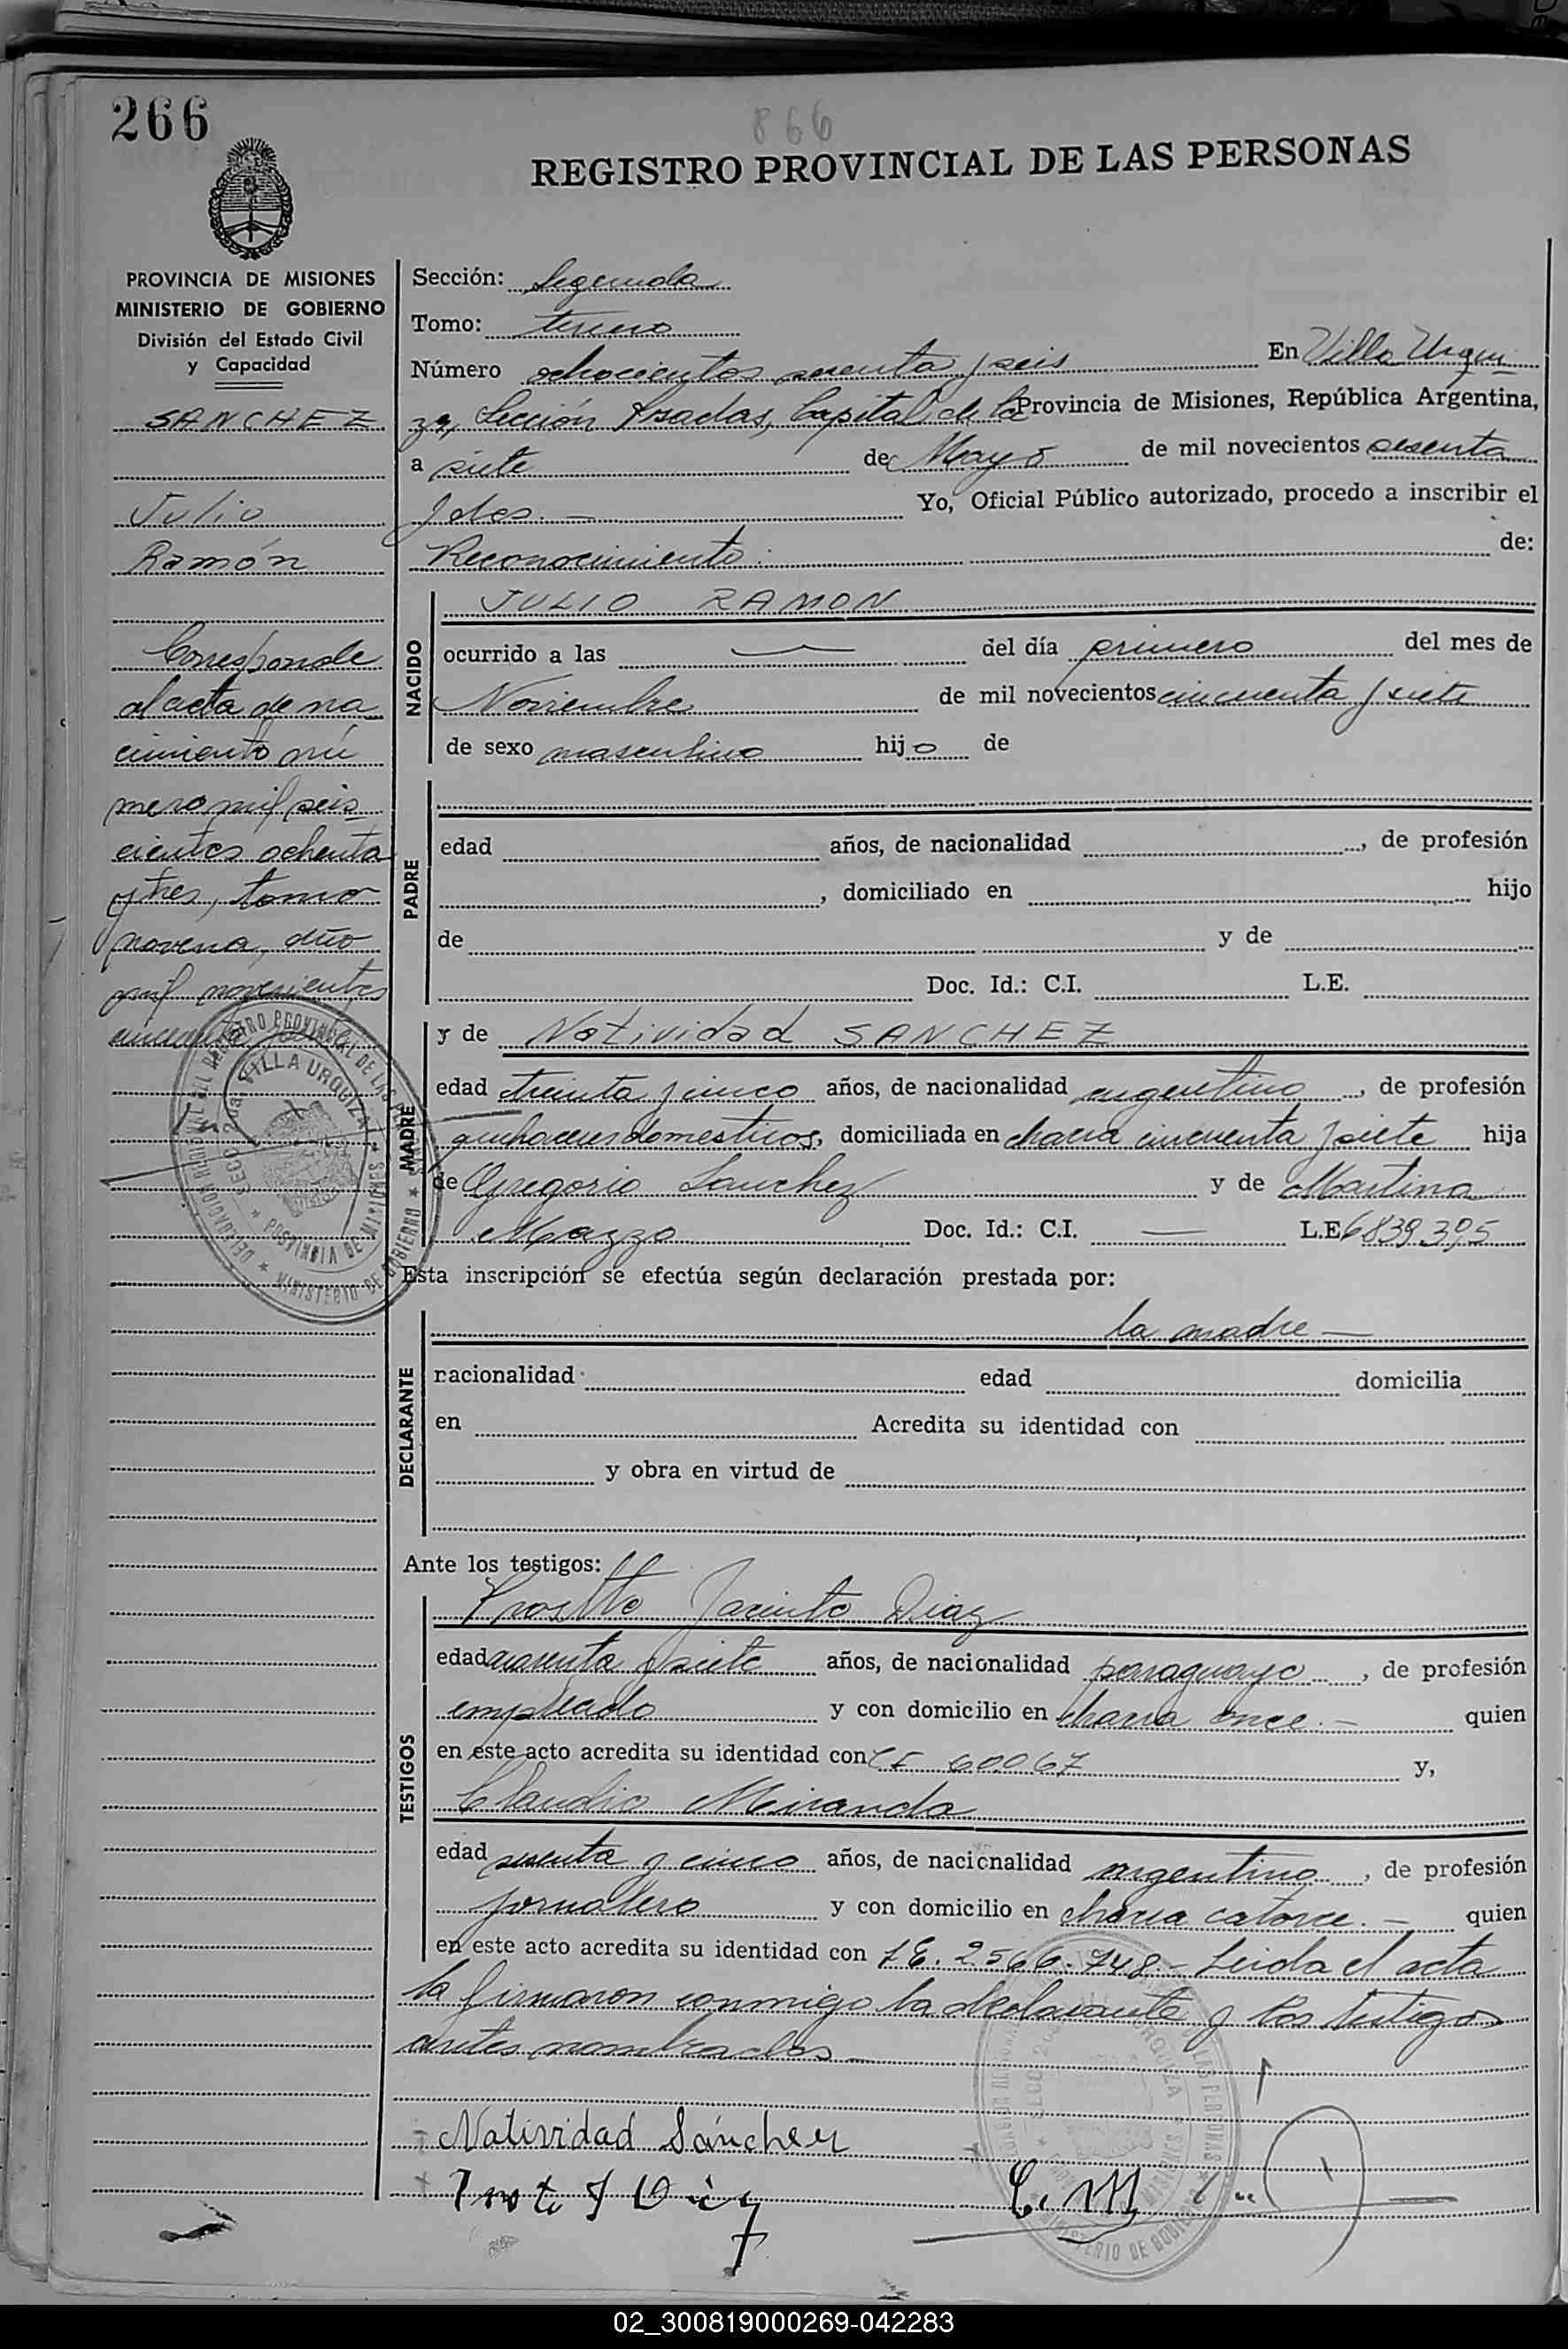 266
866
REGISTRO PROVINCIAL DE LAS PERSONAS
PROVINCIA DE MISIONES
MINISTERIO DE GOBIERNO
División del Estado Civil
y Capacidad
SANCHEZ
Julio
Ramón
Corresponde
al acta de na
cimiento nú
mero mil seis
cientos ochenta
y tres, tomo
noveno, año
mil novecientos
cincuenta
Sección: Segunda
Tomo: tercero
Número ochocientos sesenta y seis En Villa Urqui
za, Sección Posadas, Capital de la Provincia de Misiones, República Argentina,
a siete de Mayo de mil novecientos sesenta
y dos.— Yo, Oficial Público autorizado, procedo a inscribir el
Reconocimiento: de:
NACIDO
JULIO RAMON
ocurrido a las — del día primero del mes de
Noviembre de mil novecientos cincuenta y siete
de sexo masculino hijo de
PADRE
edad años, de nacionalidad , de profesión
, domiciliado en hijo
de y de
Doc. Id.: C.I. L.E.
MADRE
y de Natividad SANCHEZ
edad treinta y cinco años, de nacionalidad argentina, de profesión
quehaceres domesticos, domiciliada en chacra cincuenta y siete hija
de Gregorio Sanchez y de Martina
Mazzo Doc. Id.: C.I. — L.E 6839.395
Esta inscripción se efectúa según declaración prestada por:
DECLARANTE
la madre —
nacionalidad edad domicilia
en Acredita su identidad con
y obra en virtud de
Ante los testigos:
TESTIGOS
Jacinto Diaz
edad y siete años, de nacionalidad paraguayo, de profesión
empleado y con domicilio en chacra once.— quien
en este acto acredita su identidad con 60067 y,
Claudio Miranda
edad sesenta y cinco años, de nacionalidad argentino, de profesión
jornalero y con domicilio en chacra catorce.— quien
en este acto acredita su identidad con LE. 2566.748- Leida el acta
la firmaron conmigo la declarante y los testigos
antes nombrados —
Natividad Sánchez
C. M
VILLA URQUIZA
02_300819000269-042283